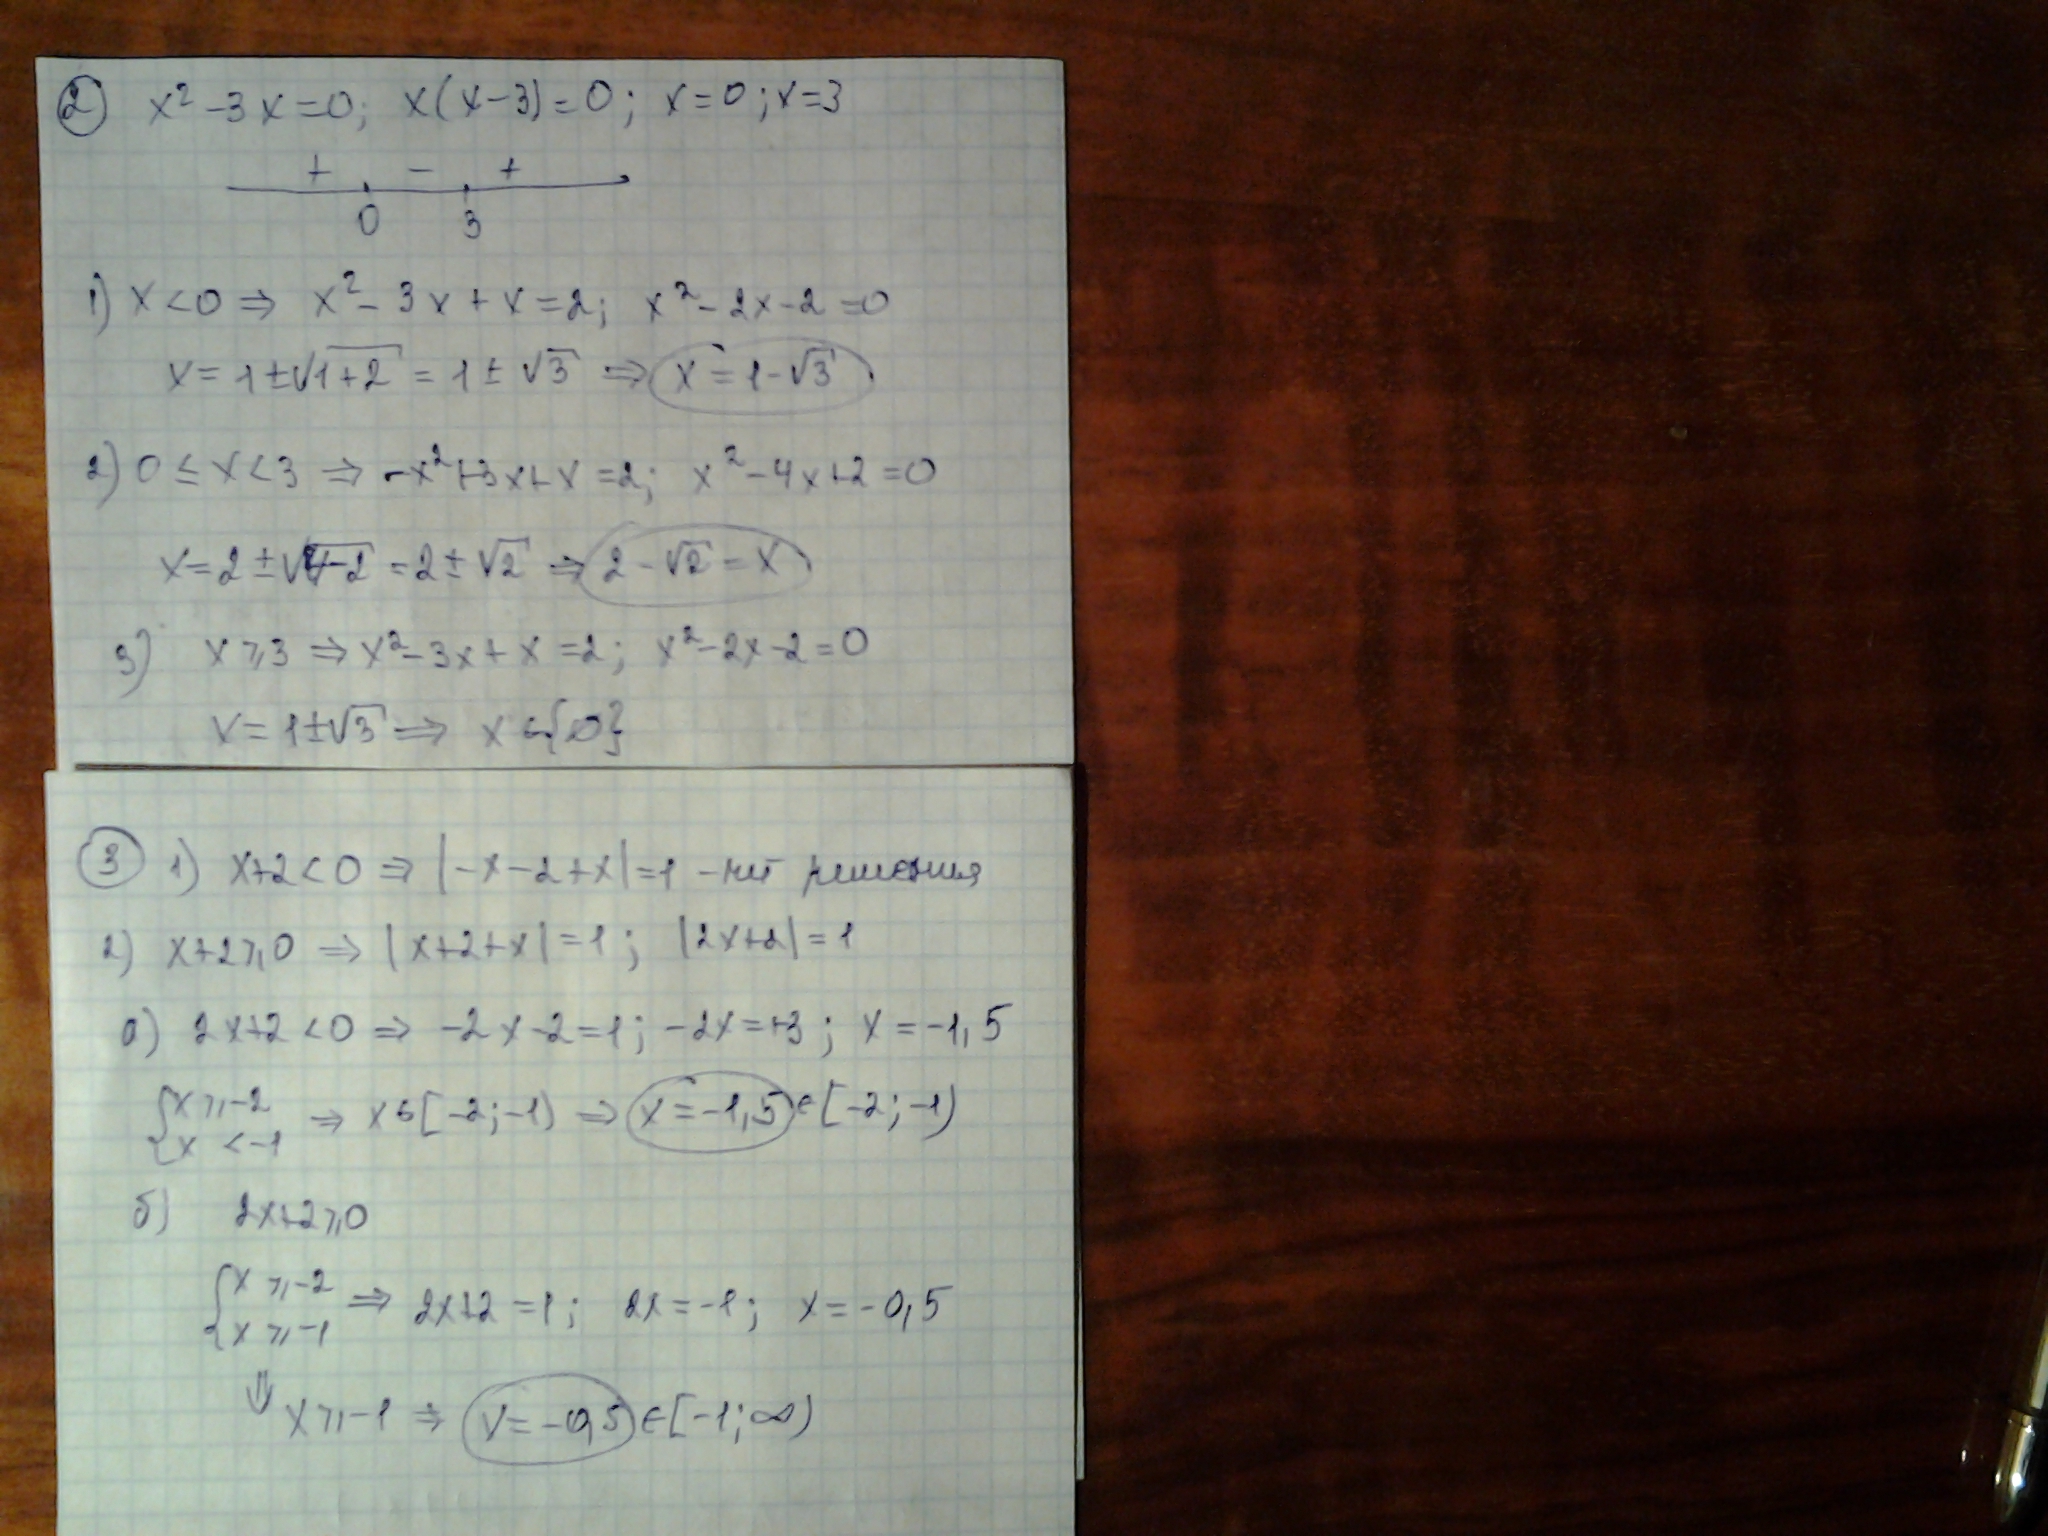 2 x² - 3x = 0; x(x-3) = 0; x = 0; x = 3
+ - +
0 3
1) x < 0 ⇒ x² - 3x + x = 2; x² - 2x - 2 = 0
x = 1 ± √1+2 = 1 ± √3 ⇒ x = 1 - √3
2) 0 ≤ x < 3 ⇒ -x² + 3x + x = 2; x² - 4x + 2 = 0
x = 2 ± √4-2 = 2 ± √2 ⇒ 2 - √2 = x
3) x ⩾ 3 ⇒ x² - 3x + x = 2; x² - 2x - 2 = 0
x = 1 ± √3 ⇒ x ∈ {∅}
3 1) x+2 < 0 ⇒ |-x-2+x| = 1 - нет решения
2) x+2 ⩾ 0 ⇒ |x+2+x| = 1; |2x+2| = 1
а) 2x+2 < 0 ⇒ -2x-2 = 1; -2x = +3; x = -1,5
{x ⩾ -2
x < -1 ⇒ x ∈ [-2; -1) ⇒ x = -1,5 ∈ [-2; -1)
б) 2x+2 ⩾ 0
{x ⩾ -2
x ⩾ -1 ⇒ 2x+2 = 1; 2x = -1; x = -0,5
⇓ x ⩾ -1 ⇒ x = -0,5 ∈ [-1; ∞)